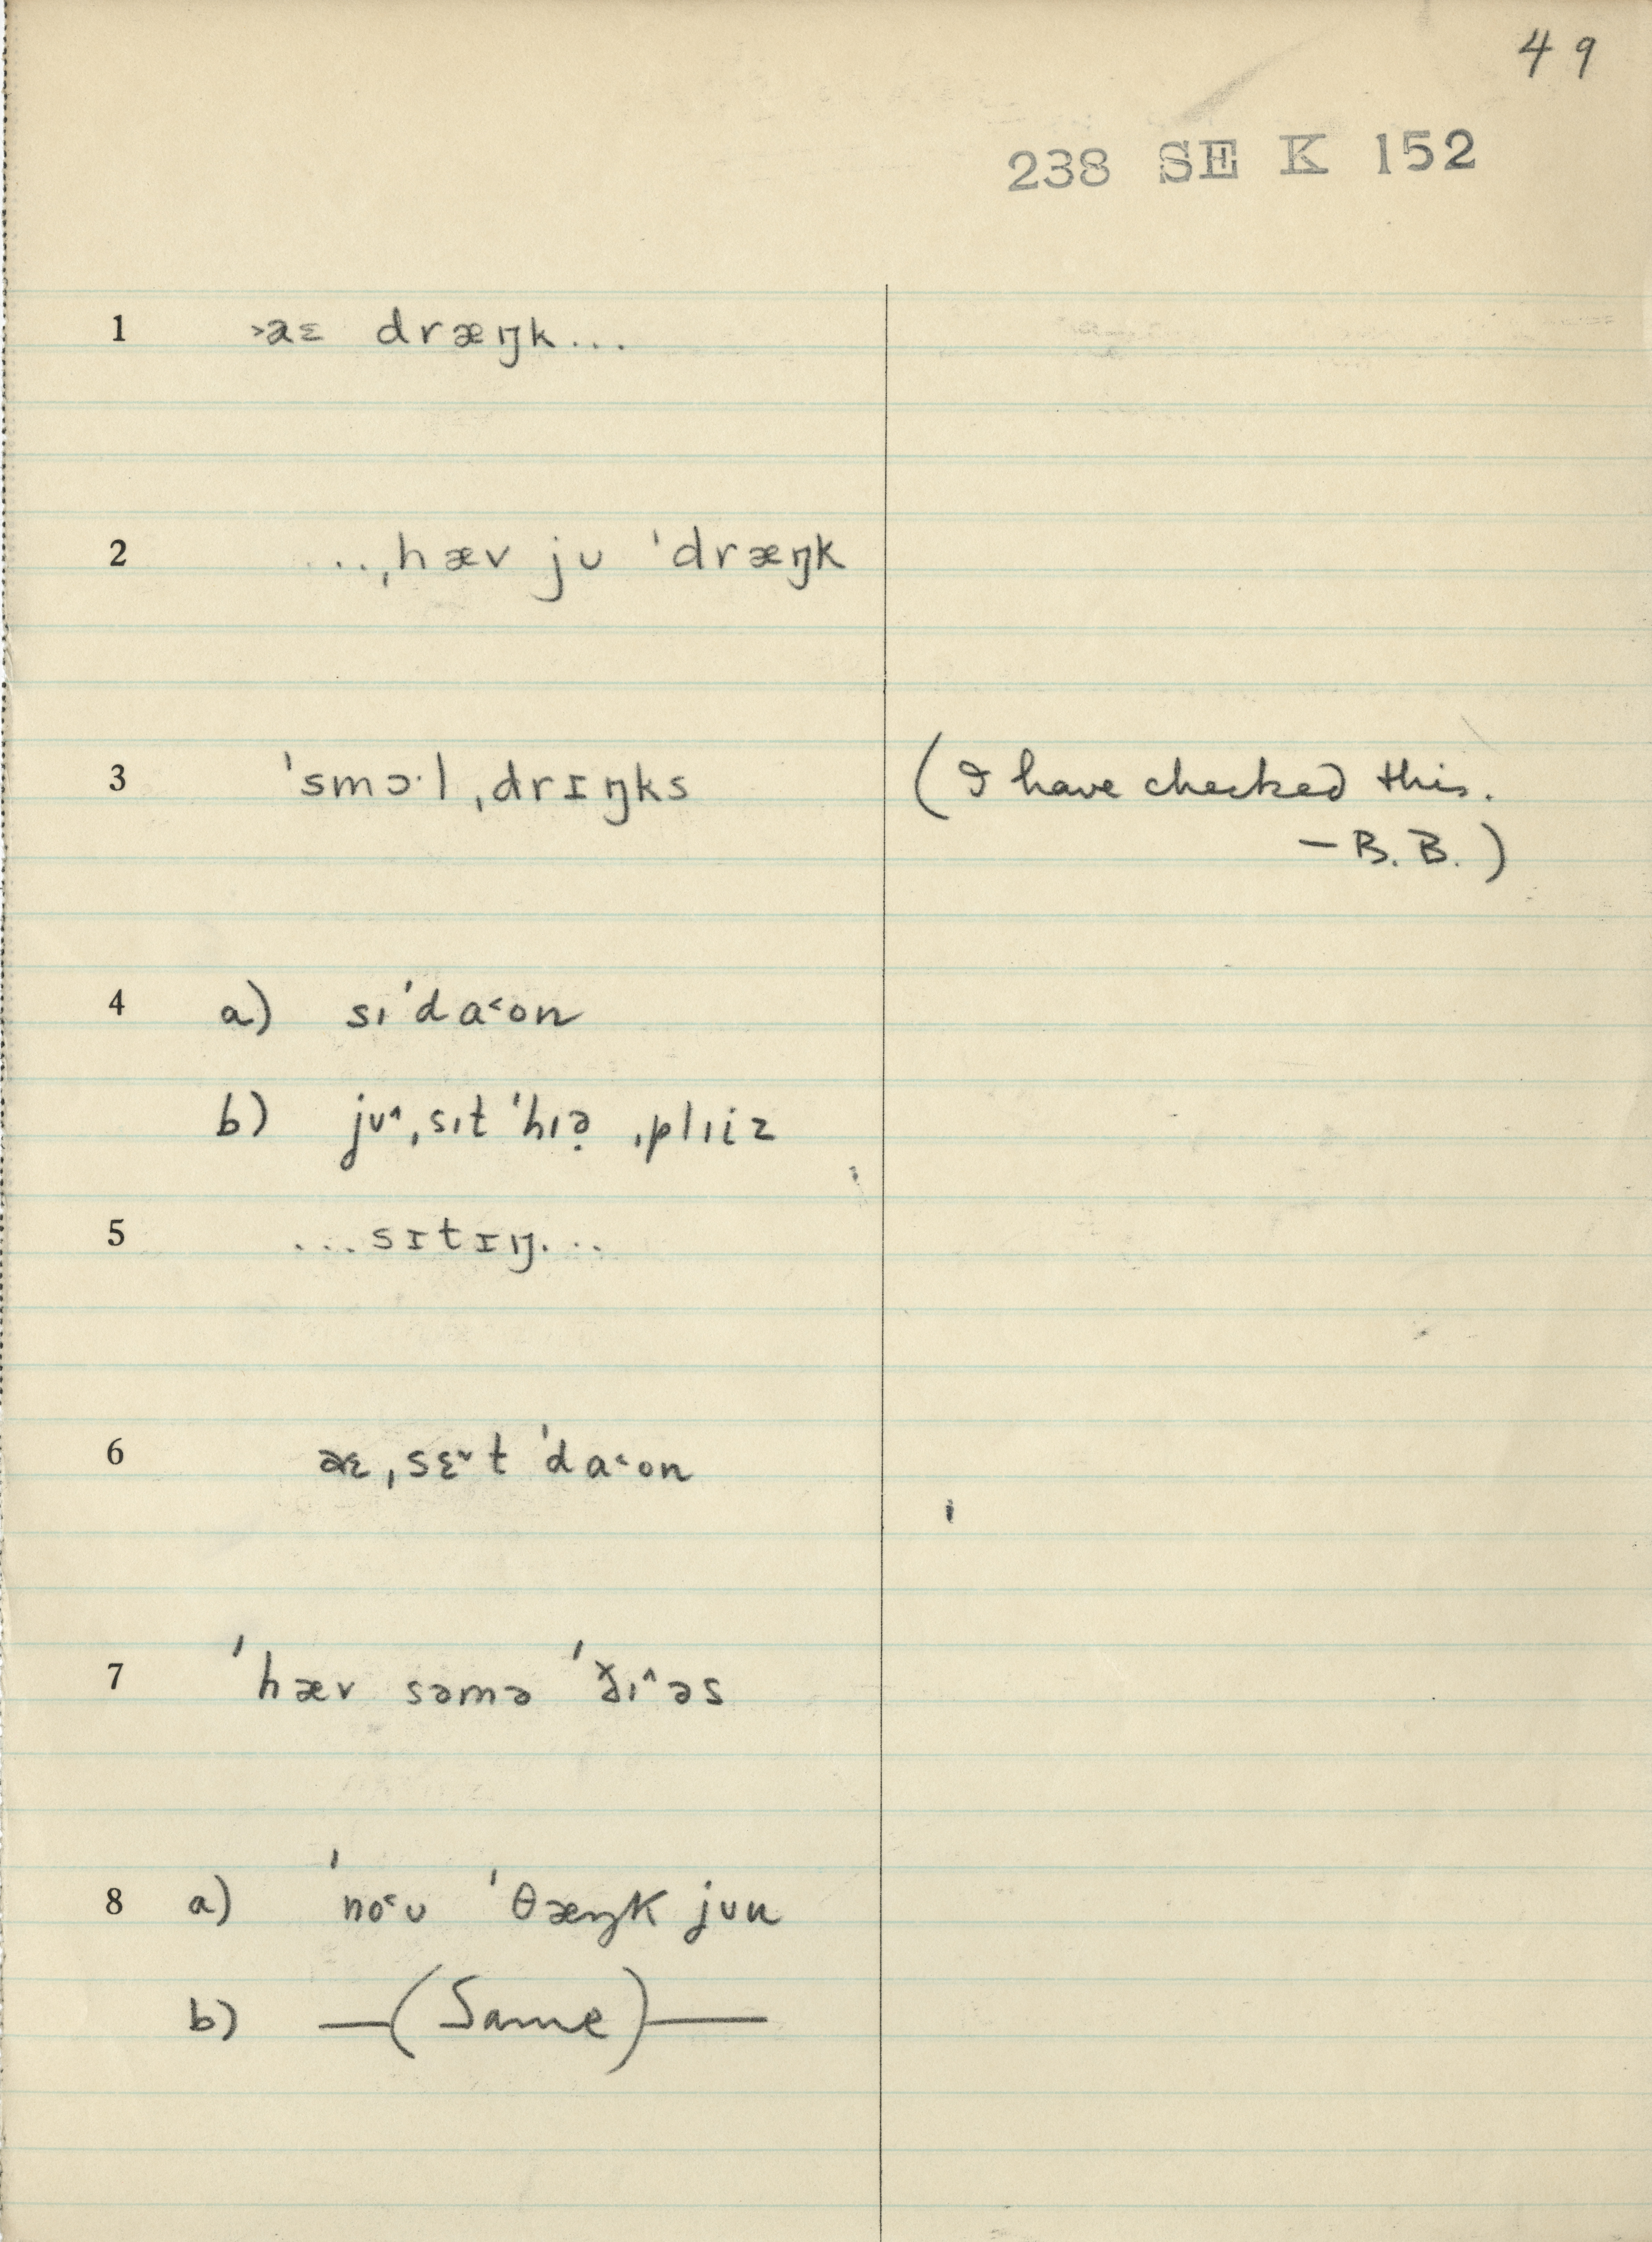 49
238 SE K 152
1 ˃aɛ dræŋk...
2 ...ˌhæv jʊ ˈdræŋk
3 ˈsmɔ·l ˌdrɪŋks (I have checked this.
— B. B.)
4 a) sɪˈda˂on
b) jʊ˄ ˌsɪt ˈhɪə̣ ˌplɪiz
5 ...sɪtɪŋ...
6 aɛ ˌsɛ˅t ˈda˂on
7 ˈhæv səmə ˈð̌ɪ˄əs
8 a) ˈno˂ʊ ˈθæŋk jʊu
b) —(Same)—